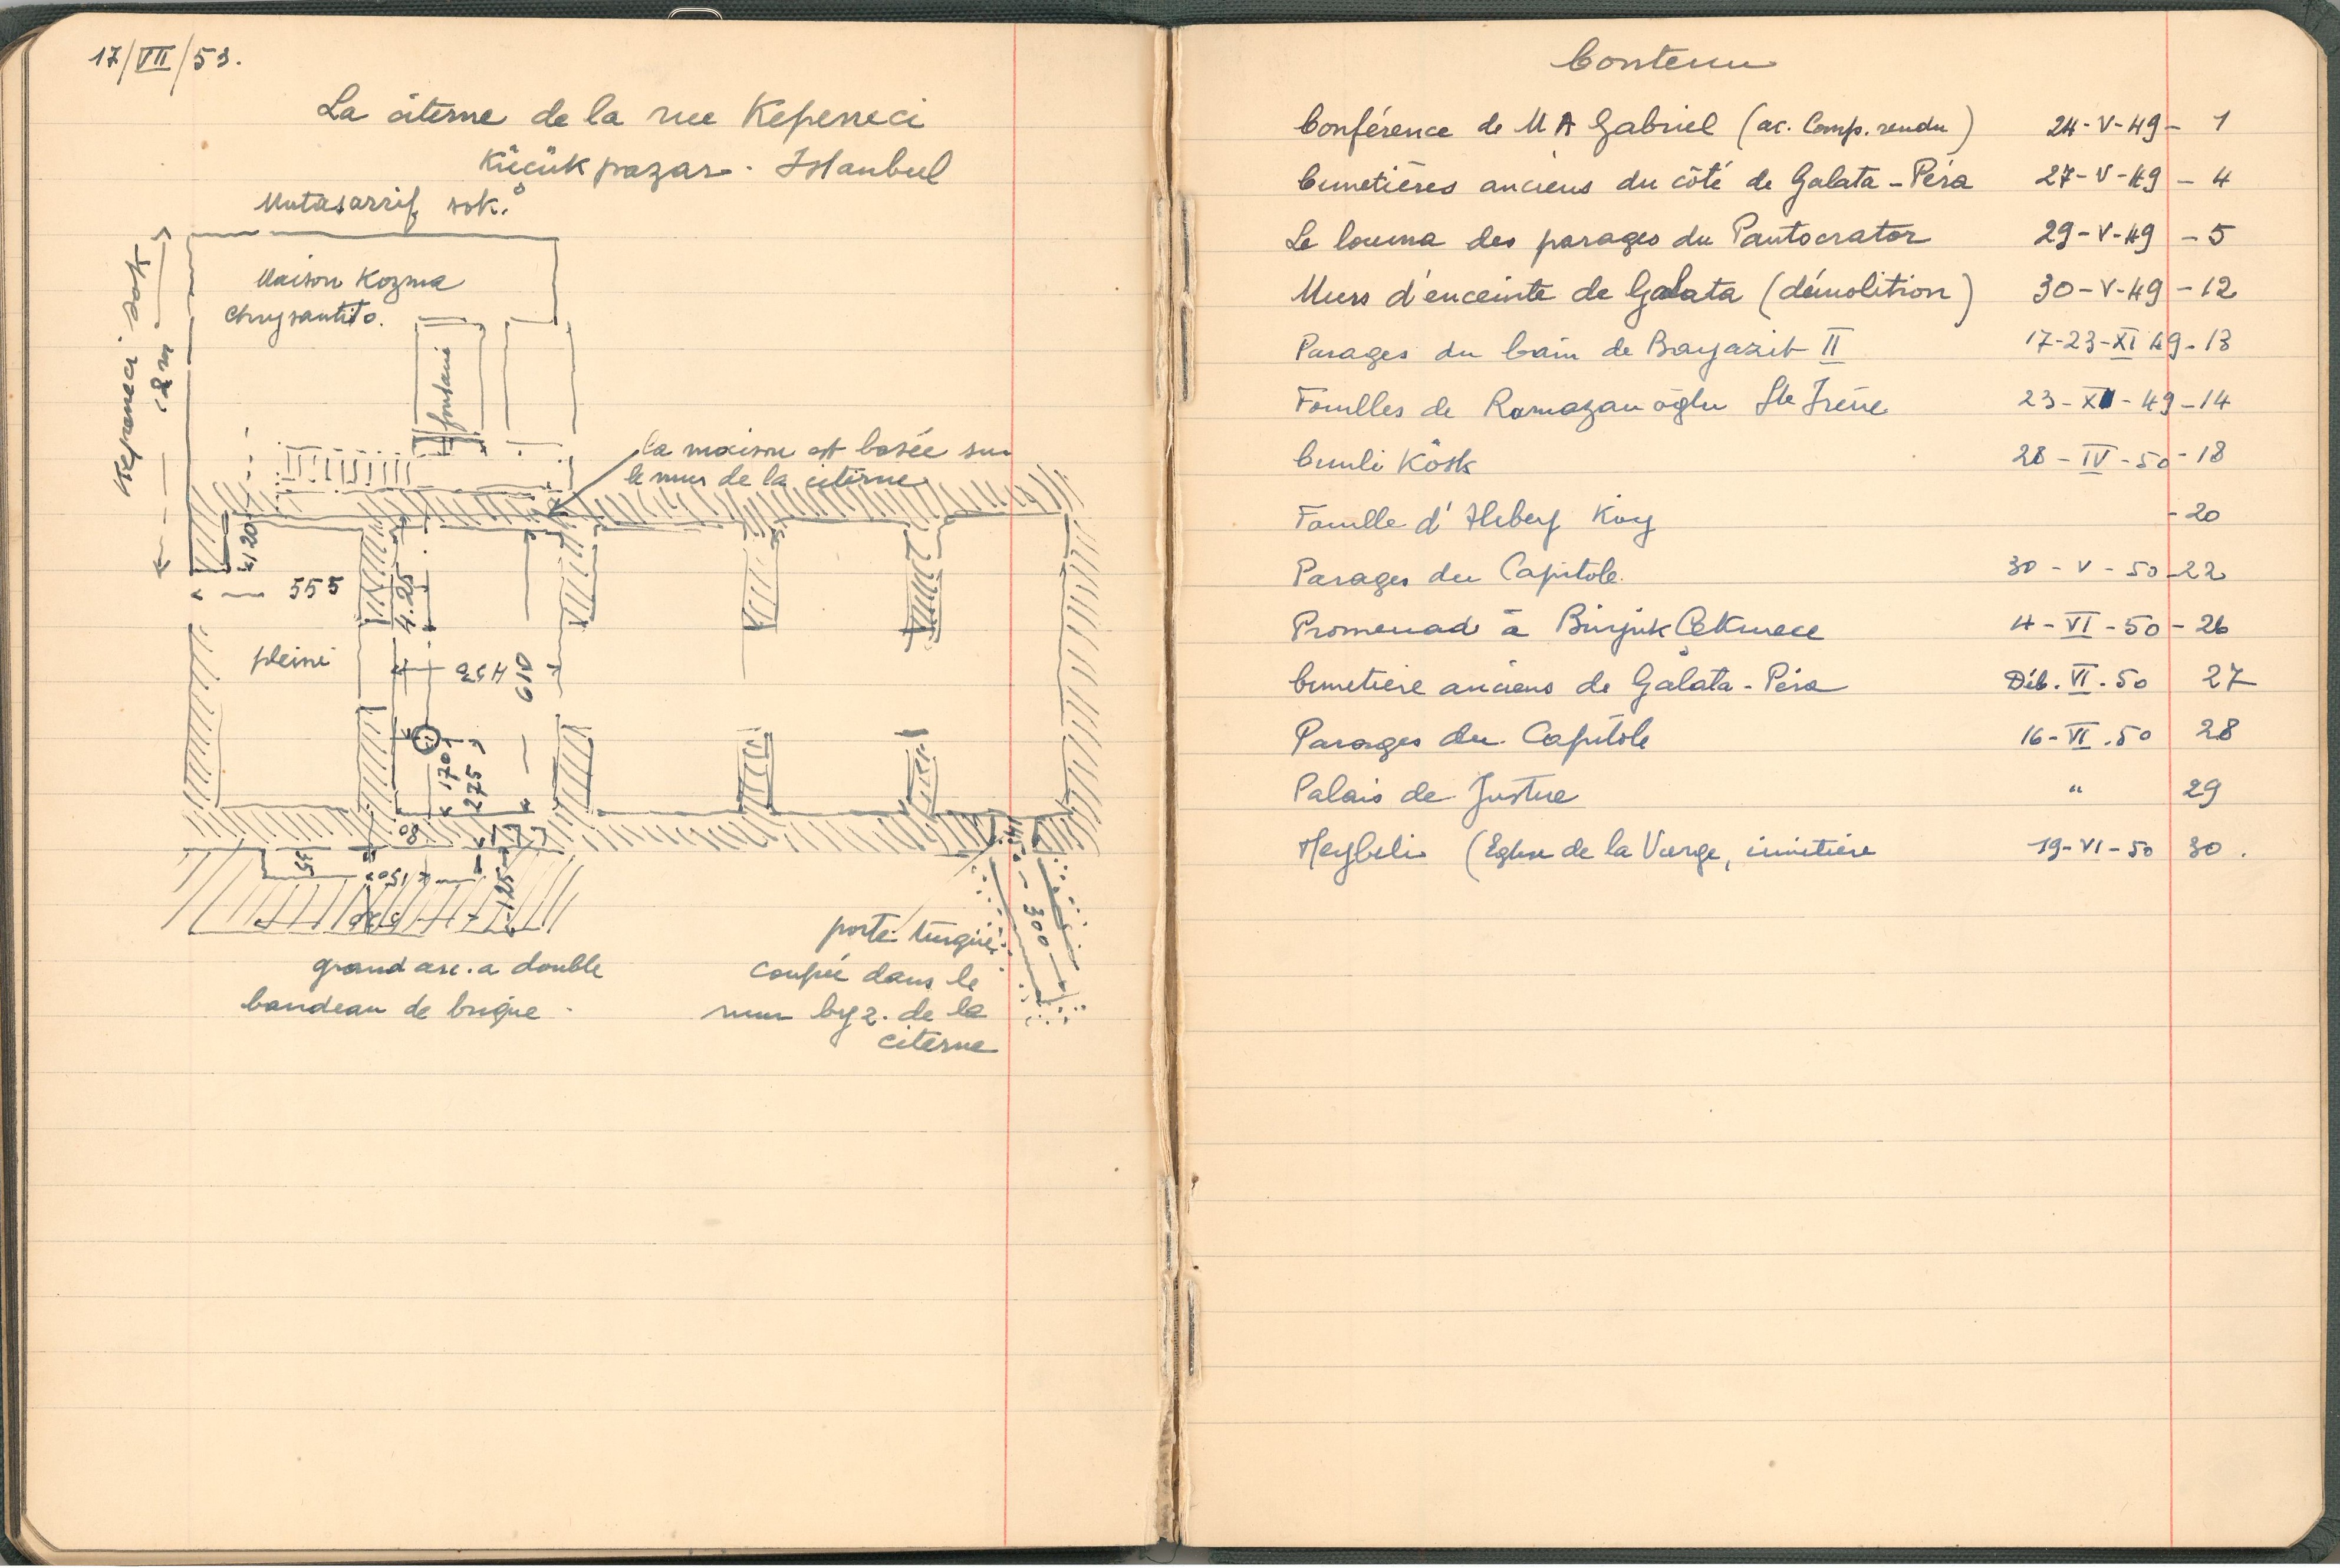 17/VII/53.
La citerne de la rue Kepeneci
Kücük pazar. Istanbul
Mutasarrif sok.
Kepeneci sok
Maison Kozma
Chrysantito.
12 m
la maison est basée sur
le mur de la citerne
1.20
555
4.25
pleini
435
610
170
275
80
55
150
125
300
grand arc. a double
bandeau de brique.
porte turque
coupée dans le
mur byz. de la
citerne
Contenu
Conférence de M A Gabriel (ac. Comp. rendu) 24-V-49-1
Cimetières anciens du côté de Galata-Péra 27-V-49-4
Le louma des parages du Pantocrator 29-V-49-5
Murs d'enceinte de Galata (démolition) 30-V-49-12
Parages du bain de Bayazit II 17-23-XI 49-13
Fouilles de Ramazanoğlu Ste Irène 23-XI-49-14
Cumli Kösk 28-IV-50-18
Fouille d' Koy -20
Parages du Capitole. 30-V-50-22
Promenad à Büyük Cekmece 4-VI-50-26
Cimetière anciens de Galata-Péra Déb. VI.50 27
Parages du Capitole 16-VI.50 28
Palais de Justice " 29
Heybeli (Eglise de la Vierge, cimetière 19-VI-50 30.